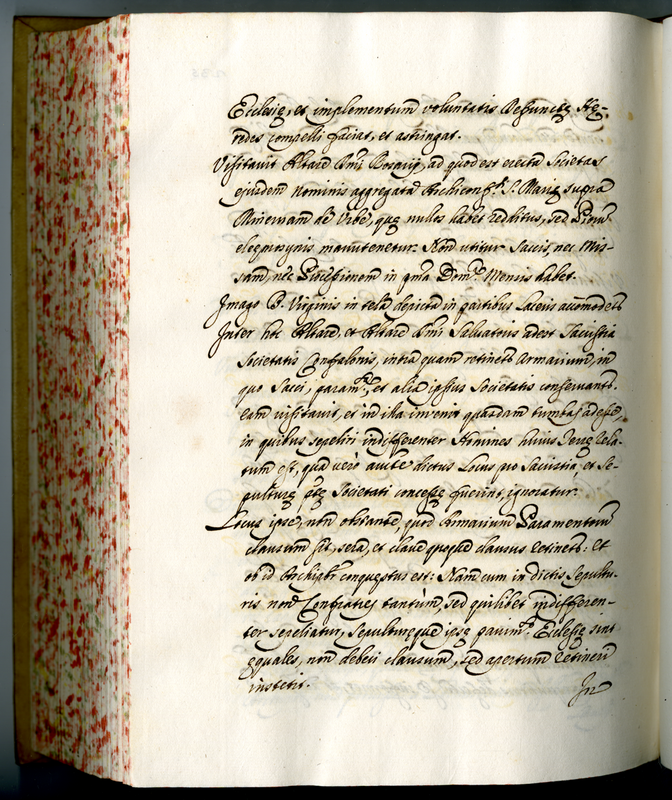 Ecclesię, et implementum voluntatis Defunctę He-
redes compelli faciat, et astringat.
Visitavit Altare SSmi Rosarij, ad quod est erecta Societas
eiusdem nominis aggregata Archiconf. S. Marię supra
Minervam de Urbe, quę nullos habet redditus, sed Pijs
eleemosynis manutenetur. Non utitur Saccis, nec Mis-
sam, nec Processionem in pma Domca Mensis habet.
Imago B. Virginis in tela depicta in partibus Lateris accomodetr
Inter hoc Altare, et Altare SSmi Salvatoris adest Sacristia
Societatis Confalonis, intra quam retinetr Armarium, in
quo Sacci, paramta, et alia ipsius Societatis conservantr.
eam visitavit, et in illa invenit quasdam tumbas adesse,
in quibus sepeliri indifferenter Homines huius Terrę rela-
tum est, qua verò auctte dictus Locus pro Sacristia, et Se-
pulturę ptę Societati concessę fuerint, ignoratur.
Locus ipse, non obstante, quod Armarium Paramentorum
clausum sit, sera, et clave quoque clausus retinetr: et
ob id Archipbr conquestus est: Nam cum in dictis sepultu-
ris non Confratres tantùm, sed quilibet indifferen-
ter sepeliatur, Sepulturęque ipsę pavimto Ecclesię sint
ęquales, non deberi clausum, sed apertum retineri
institit.
In